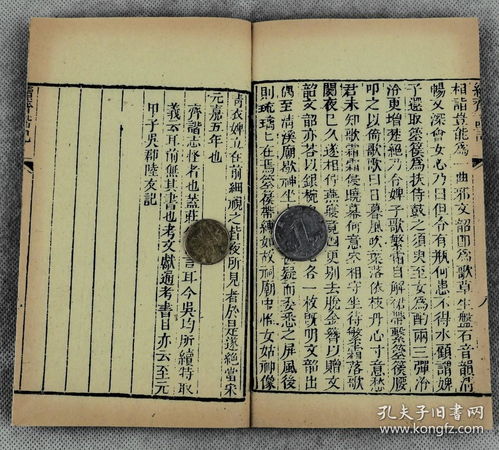 相詣豈能為一曲邪文韶即為歌草生盤石音韻清
暢又深會女心乃曰但令有瓶何患不得水顧謂婢
子還取箜篌為扶侍鼓之須臾至女為酌兩三彈泠
泠更增楚絕乃令婢子歌繁霜自解裙帶繫箜篌腰
叩之以倚歌歌曰日暮風吹葉落依枝丹心寸意愁
君未知歌霜霜侵曉幕何意空相守坐待繁霜落歌
闋夜已久遂相佇燕寢竟四更別去脫金簪以贈文
韶文韶亦答以銀椀
各一枚既明文韶出
偶至清溪廟歇神坐
疑而委悉之屏風後
則琉璃匕在焉箜篌帶縛如故祠廟中惟女姑神像
青衣婢立在前細視之皆夜所見者於是遂絕當宋
元嘉五年也
齊諧志怪者也蓋莊
言耳今吳均所續特取
義云耳前無其書也考文獻通考書目亦云至元
甲子吳郡陸友記
孔夫子旧书网